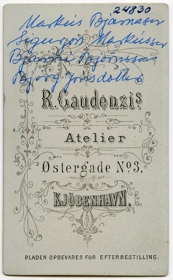 24830
Markús Bjarnason
Sigurjón Markússon
Bjarni Bjarnason
Björg Jónsdóttir
R. Gaudenzi's
Atelier
Ostergade No 3.
KJÖBENHAVN.
PLADEN OPBEVARES FOR EFTERBESTILLING.